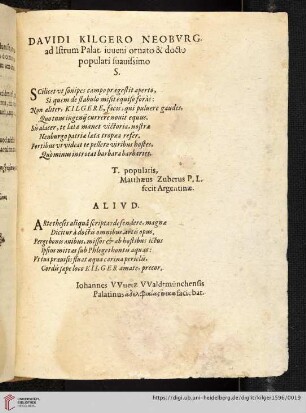 DAVIDI KILGERO NEOBVRG.
ad Istrum Palat. iuveni ornato & docto
populari suavissimo
S.
Scilicet vt sonipes campo progressit aperto,
Si quem de stabulo misit equiso foris:
Non aliter KILGERE, facis, qui pulvere gaudes,
Quo tuus ingenij currere novit equus.
Sis alacer, te lata manet victoria, nostræ
Neuburgo patriæ lata tropæa refer.
Fortibus vt videat te pellere viribus hostes,
Quò minus intret at barbara barbaries.
T. popularis,
Matthæus Zuberus P. L.
fecit Argentinæ.
ALIVD.
Atte thesis aliquâ scriptas defendere, magnæ
Dicitur à doctis omnibus artis opus,
Perge bonis avibus, missos & ab hostibus ictus
Ipsim mottas sub Phlegethontis aquas:
Et tua præmissi fluat aqua carina pericla.
Cordis sæpe loco KILGER amate, precor,
Iohannes VValdtmünchensis
Palatinus faciebat.
https://digi.ub.uni-heidelberg.de/diglit/kilger1596/0013